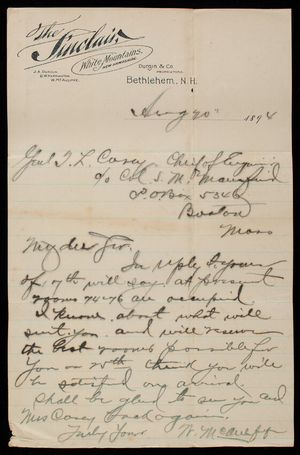 The
Sinclair,
White Mountains,
New Hampshire.
Durgin & Co.
Proprietors.
Bethlehem, N.H.
Aug 10 1894
Genl T. L. Casey Chief of Engin
c/o Col S. M. Mansfield
P.O Box 5346
Boston
Mass
My dear Sir.
In reply to yours
of 7th will say at present
rooms 74-76 are occupied.
I know about what will
suit you and will reserve
the best rooms possible for
you on 20th think you will
be satisfied on arrival.
Shall be glad to see you and
Mrs Casey back again.
Truly Yours W. McAuliffe